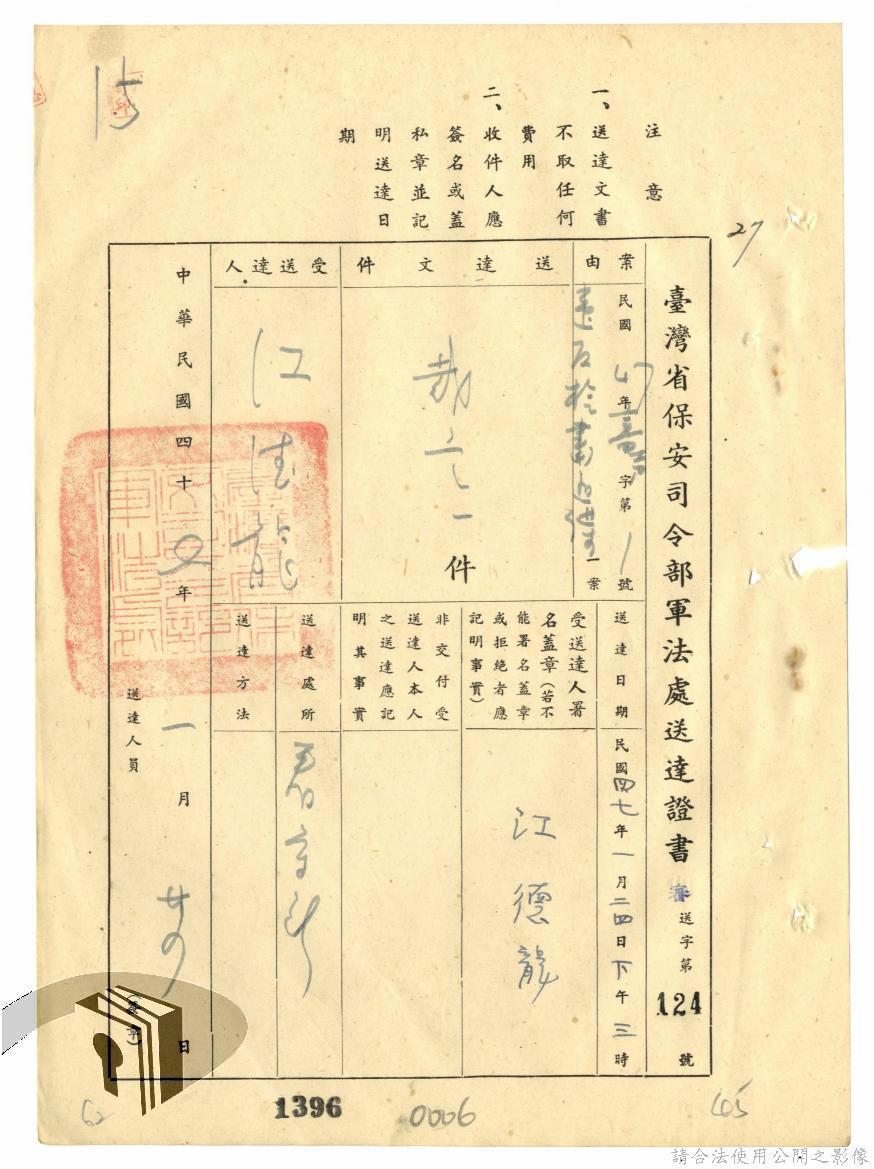 15
注意
一、送達文書
不取任何
費用
二、收件人應
簽名或蓋
私章並記
明送達日
期
27
臺灣省保安司令部軍法處送達證書 審 送字第124號
案由
民國47年 字第1號
一案
送達文件
件
受送達人
江德龍
送達日期
民國四七年一月二四日下午三時
受送達人署
名蓋章(若不
能署名蓋章
或拒絕者應
記明事實)
江德龍
非交付受
送達人本人
之送達應記
明其事實
送達處所
送達方法
中華民國四十 年一月廿四日
送達人員
1396
0006
62
65
請合法使用公開之影像